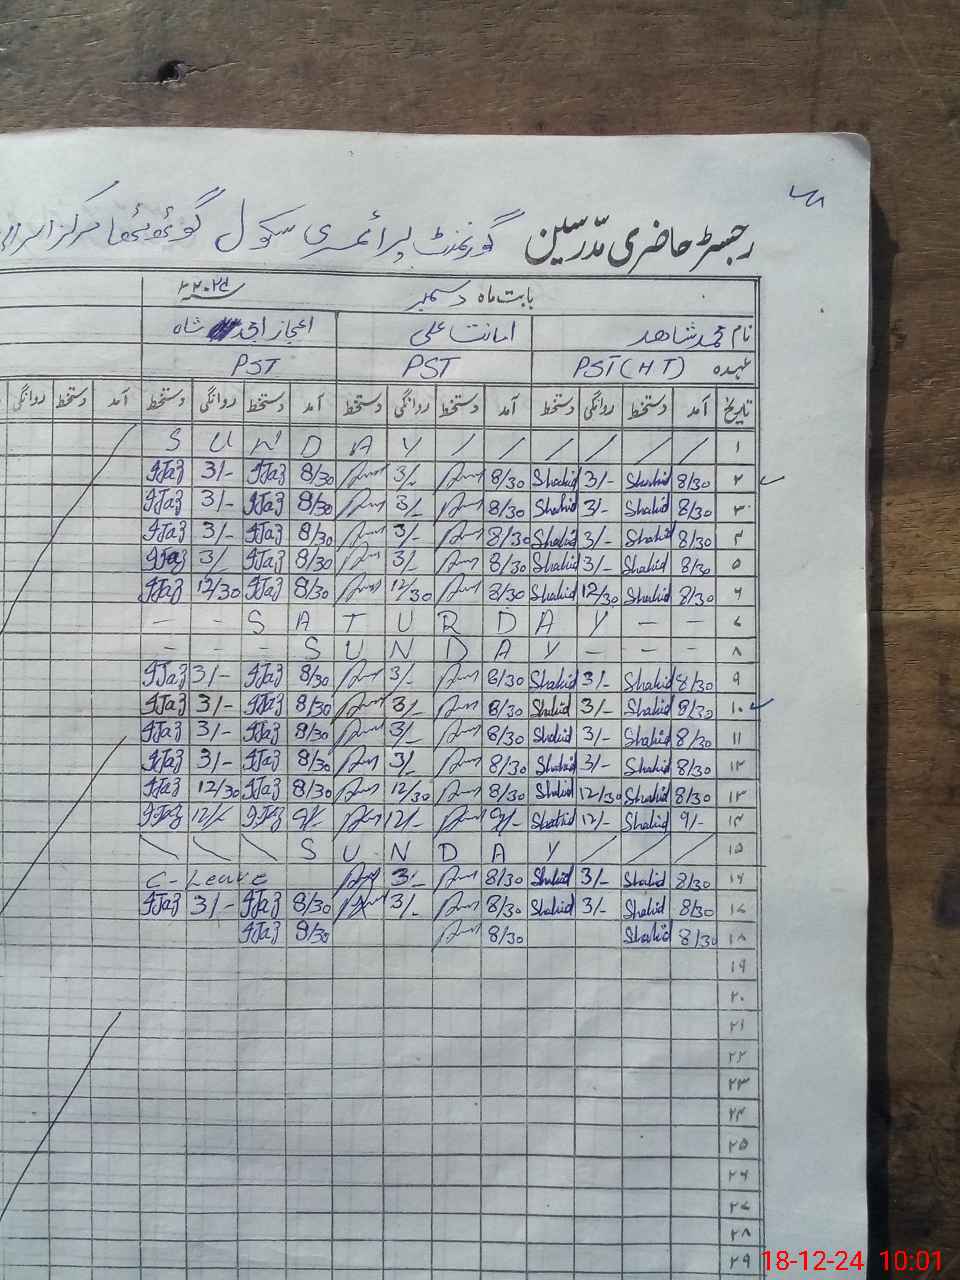 رجسٹر حاضری مدرسین گورنمنٹ پرائمری سکول
بابت ماہ دسمبر
نام محمد شاھد امانت علی اعجاز شاہ
عہدہ PST (HT) PST PST
تاریخ آمد دستخط روانگی دستخط آمد دستخط روانگی دستخط آمد دستخط روانگی دستخط آمد دستخط روانگی
۱ S U N D A Y / / / / / /
۲ 8/30 Shahid 3/- Shahid 8/30 3/- 8/30 IJaz 3/- IJaz
۳ 8/30 Shahid 3/- Shahid 8/30 3/- 8/30 IJaz 3/- IJaz
۴ 8/30 Shahid 3/- Shahid 8/30 3/- 8/30 IJaz 3/- IJaz
۵ 8/30 Shahid 3/- Shahid 8/30 3/- 8/30 IJaz 3/- IJaz
۶ 8/30 Shahid 12/30 Shahid 8/30 12/30 8/30 IJaz 12/30 IJaz
۷ - - S A T U R D A Y - -
۸ - - - S U N D A Y - - -
۹ 8/30 Shahid 3/- Shahid 8/30 3/- 8/30 IJaz 3/- IJaz
۱۰ 8/30 Shahid 3/- Shahid 8/30 3/- 8/30 IJaz 3/- IJaz
۱۱ 8/30 Shahid 3/- Shahid 8/30 3/- 8/30 IJaz 3/- IJaz
۱۲ 8/30 Shahid 3/- Shahid 8/30 3/- 8/30 IJaz 3/- IJaz
۱۳ 8/30 Shahid 12/30 Shahid 8/30 12/30 8/30 IJaz 12/30 IJaz
۱۴ 9/- Shahid 12/- Shahid 9/- 12/- 9/- IJaz 12/- IJaz
۱۵ \ \ \ S U N D A Y / / /
۱۶ 8/30 Shahid 3/- Shahid 8/30 3/- C - Leave
۱۷ 8/30 Shahid 3/- Shahid 8/30 3/- 8/30 IJaz 3/- IJaz
۱۸ 8/30 Shahid 8/30 8/30 IJaz
۱۹
۲۰
۲۱
۲۲
۲۳
۲۴
۲۵
۲۶
۲۷
۲۸
۲۹
18-12-24 10:01